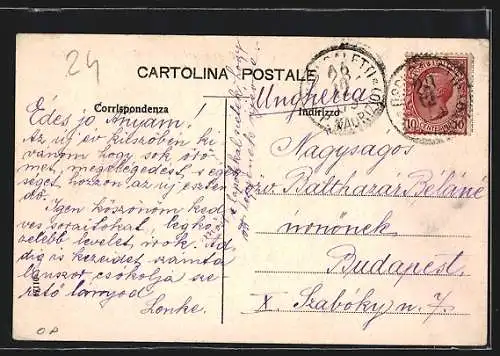 24
CARTOLINA POSTALE
Corrispondenza
Indirizzo
Ungheria
Édes jó Anyám!
Az új év küszöbén ki-
vánom hogy sok örö-
met, megelégedést, s egés-
séget hozzon az új eszten-
dő.
Igen köszönöm ked-
ves soraitokat, legkö-
zelebb levelet irok. Ad-
dig is kezeidet számta-
lanszor csókolja sze-
rető lányod
Ilonke.
Nagyságos
özv. Balthazár Béláné
úrnőnek
Budapest
X. Szabóky u. 7.